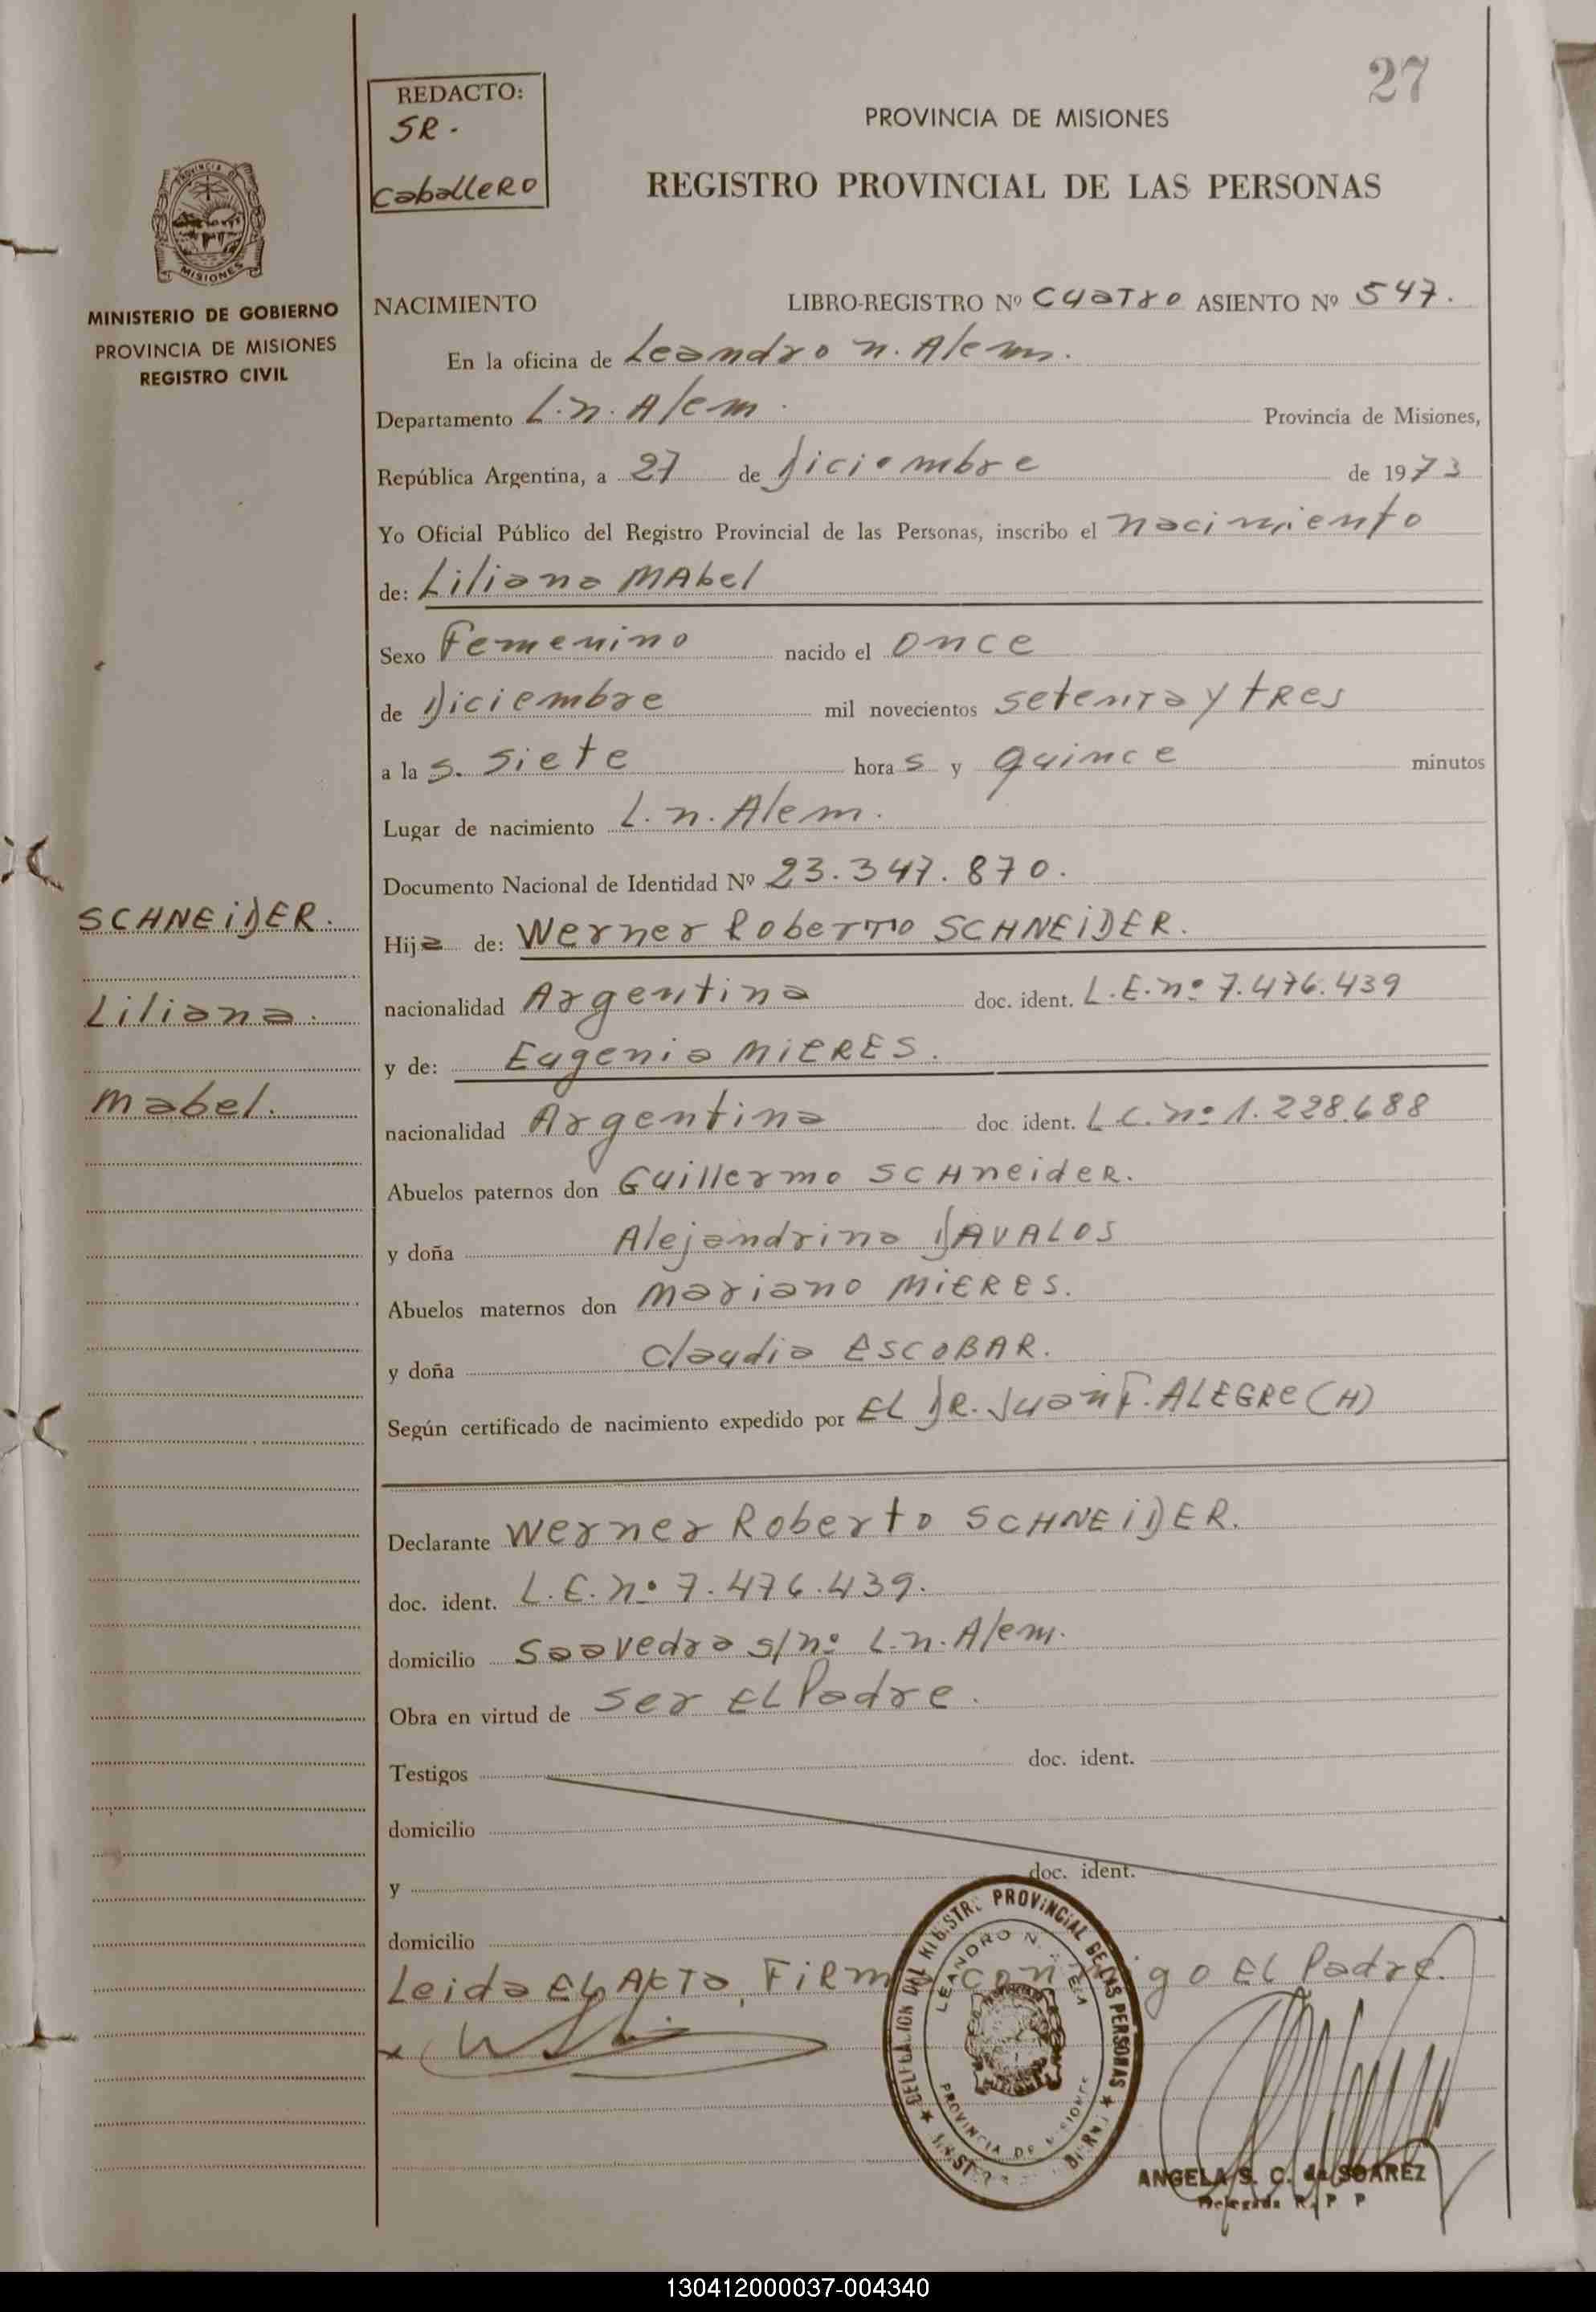 27
REDACTO:
SR.
Caballero
PROVINCIA DE MISIONES
REGISTRO PROVINCIAL DE LAS PERSONAS
PROVINCIA DE
MISIONES
MINISTERIO DE GOBIERNO
PROVINCIA DE MISIONES
REGISTRO CIVIL
NACIMIENTO LIBRO-REGISTRO Nº Cuatro ASIENTO Nº 547.
En la oficina de Leandro n. Alem.
Departamento L.n. Alem. Provincia de Misiones,
República Argentina, a 27 de Diciembre de 1973
Yo Oficial Público del Registro Provincial de las Personas, inscribo el nacimiento
de: Liliana MAbel
Sexo Femenino nacido el once
de Diciembre mil novecientos setenta y tres
a la s. siete hora s y quince minutos
Lugar de nacimiento L.n. Alem.
Documento Nacional de Identidad Nº 23.347.870.
SCHNEIDER.
Liliana.
mabel.
Hija de: Werner Roberto SCHNEIDER.
nacionalidad Argentina doc. ident. L.E.nº 7.476.439
y de: Eugenia MIERES.
nacionalidad Argentina doc. ident. L.C.nº 1.228.688
Abuelos paternos don Guillermo SCHneideR.
y doña Alejandrina DAVALOS
Abuelos maternos don Mariano MIERES.
y doña Claudia ESCOBAR.
Según certificado de nacimiento expedido por EL DR. Juan F. ALEGRe (H)
Declarante Werner Roberto SCHNEIDER.
doc. ident. L.E.nº 7.476.439.
domicilio Saavedra s/nº L.n. Alem.
Obra en virtud de ser EL Padre.
Testigos doc. ident.
domicilio
y doc. ident.
domicilio
Leida EL ActA, FiRma conmigo EL Padre.
DELEGACION DEL REGISTRO PROVINCIAL DE LAS PERSONAS
LEANDRO N.
PROVINCIA DE MISIONES
ANGELA S. C. de SOAREZ
Delegada R. P. P
130412000037-004340